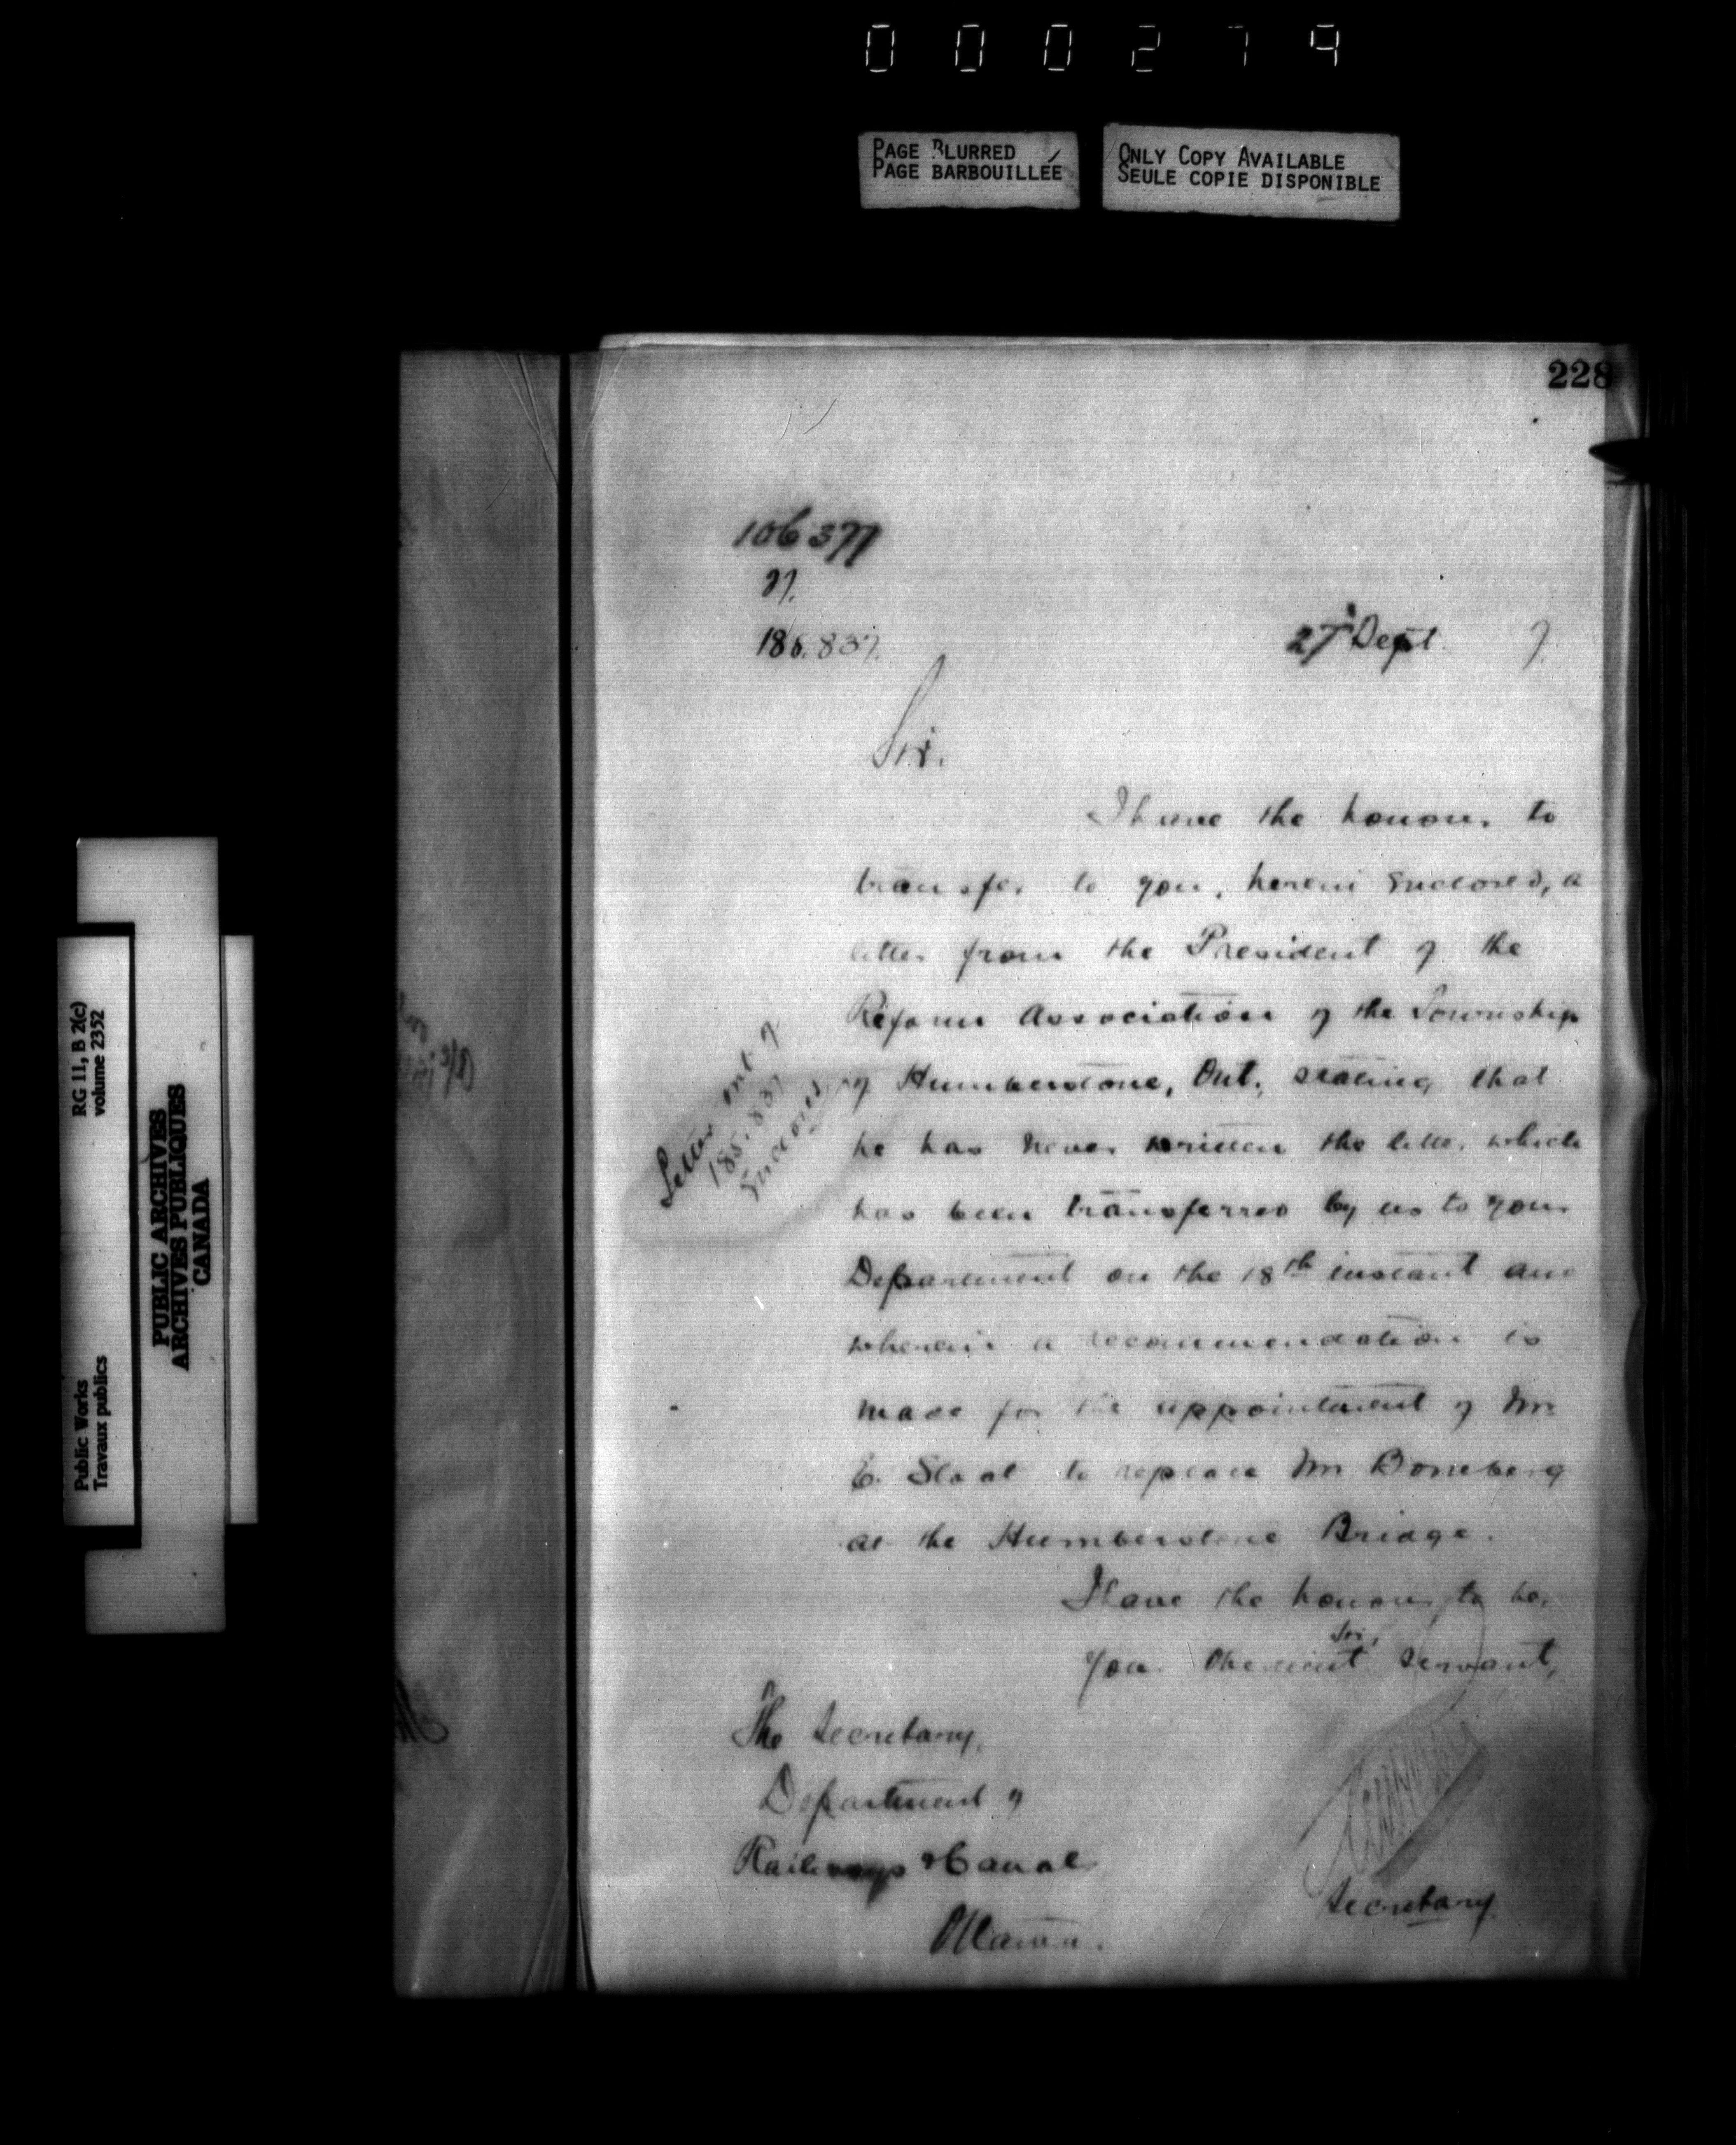 000279
PAGE BLURRED
PAGE BARBOUILLÉE
ONLY COPY AVAILABLE
SEULE COPIE DISPONIBLE
228
106377
185.837.
27 Sept 7.
Sir.
I have the honour to
transfer to you, herein enclosed, a
letter from the President of the
Reform Association of the Township
of Humberstone, Ont., stating that
he has never written the letter which
has been transferred by us to your
Department on the 18th instant and
wherein a recommendation is
made for the appointment of Mr
E. Sloat to replace Mr Boneberg
at the Humberstone Bridge.
I have the honour to be,
Sir,
Your Obedient Servant,
The Secretary,
Department of
Railways & Canals
Ottawa.
Secretary.
Letter ent of
185.837
Enclosed
RG 11, B 2(c)
volume 2352
Public Works
Travaux publics
PUBLIC ARCHIVES
ARCHIVES PUBLIQUES
CANADA